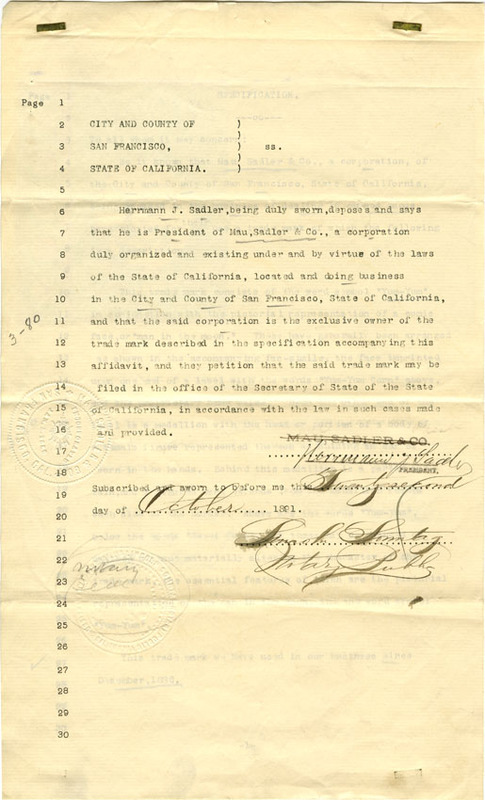 Page 1
2 CITY AND COUNTY OF )
3 SAN FRANCISCO, ) ss.
4 STATE OF CALIFORNIA. )
5
6 Herrmann J. Sadler, being duly sworn, deposes and says
7 that he is President of Mau, Sadler & Co., a corporation
8 duly organized and existing under and by virtue of the laws
9 of the State of California, located and doing business
10 in the City and County of San Francisco, State of California,
3-80
11 and that the said corporation is the exclusive owner of the
12 trade mark described in the specification accompanying this
13 affidavit, and they petition that the said trade mark may be
14 filed in the office of the Secretary of State of the State
15 of California, in accordance with the law in such cases made
16 and provided.
MAU, SADLER & CO.
17 Herrmann J Sadler
PRESIDENT,
18
19 Subscribed and sworn to before me this Twenty second
20 day of October 1891.
21
Notary Public
22
notary
23 seal
24
25
26
This trade mark we have used in our business since
27
28 December, 1890.
29
30